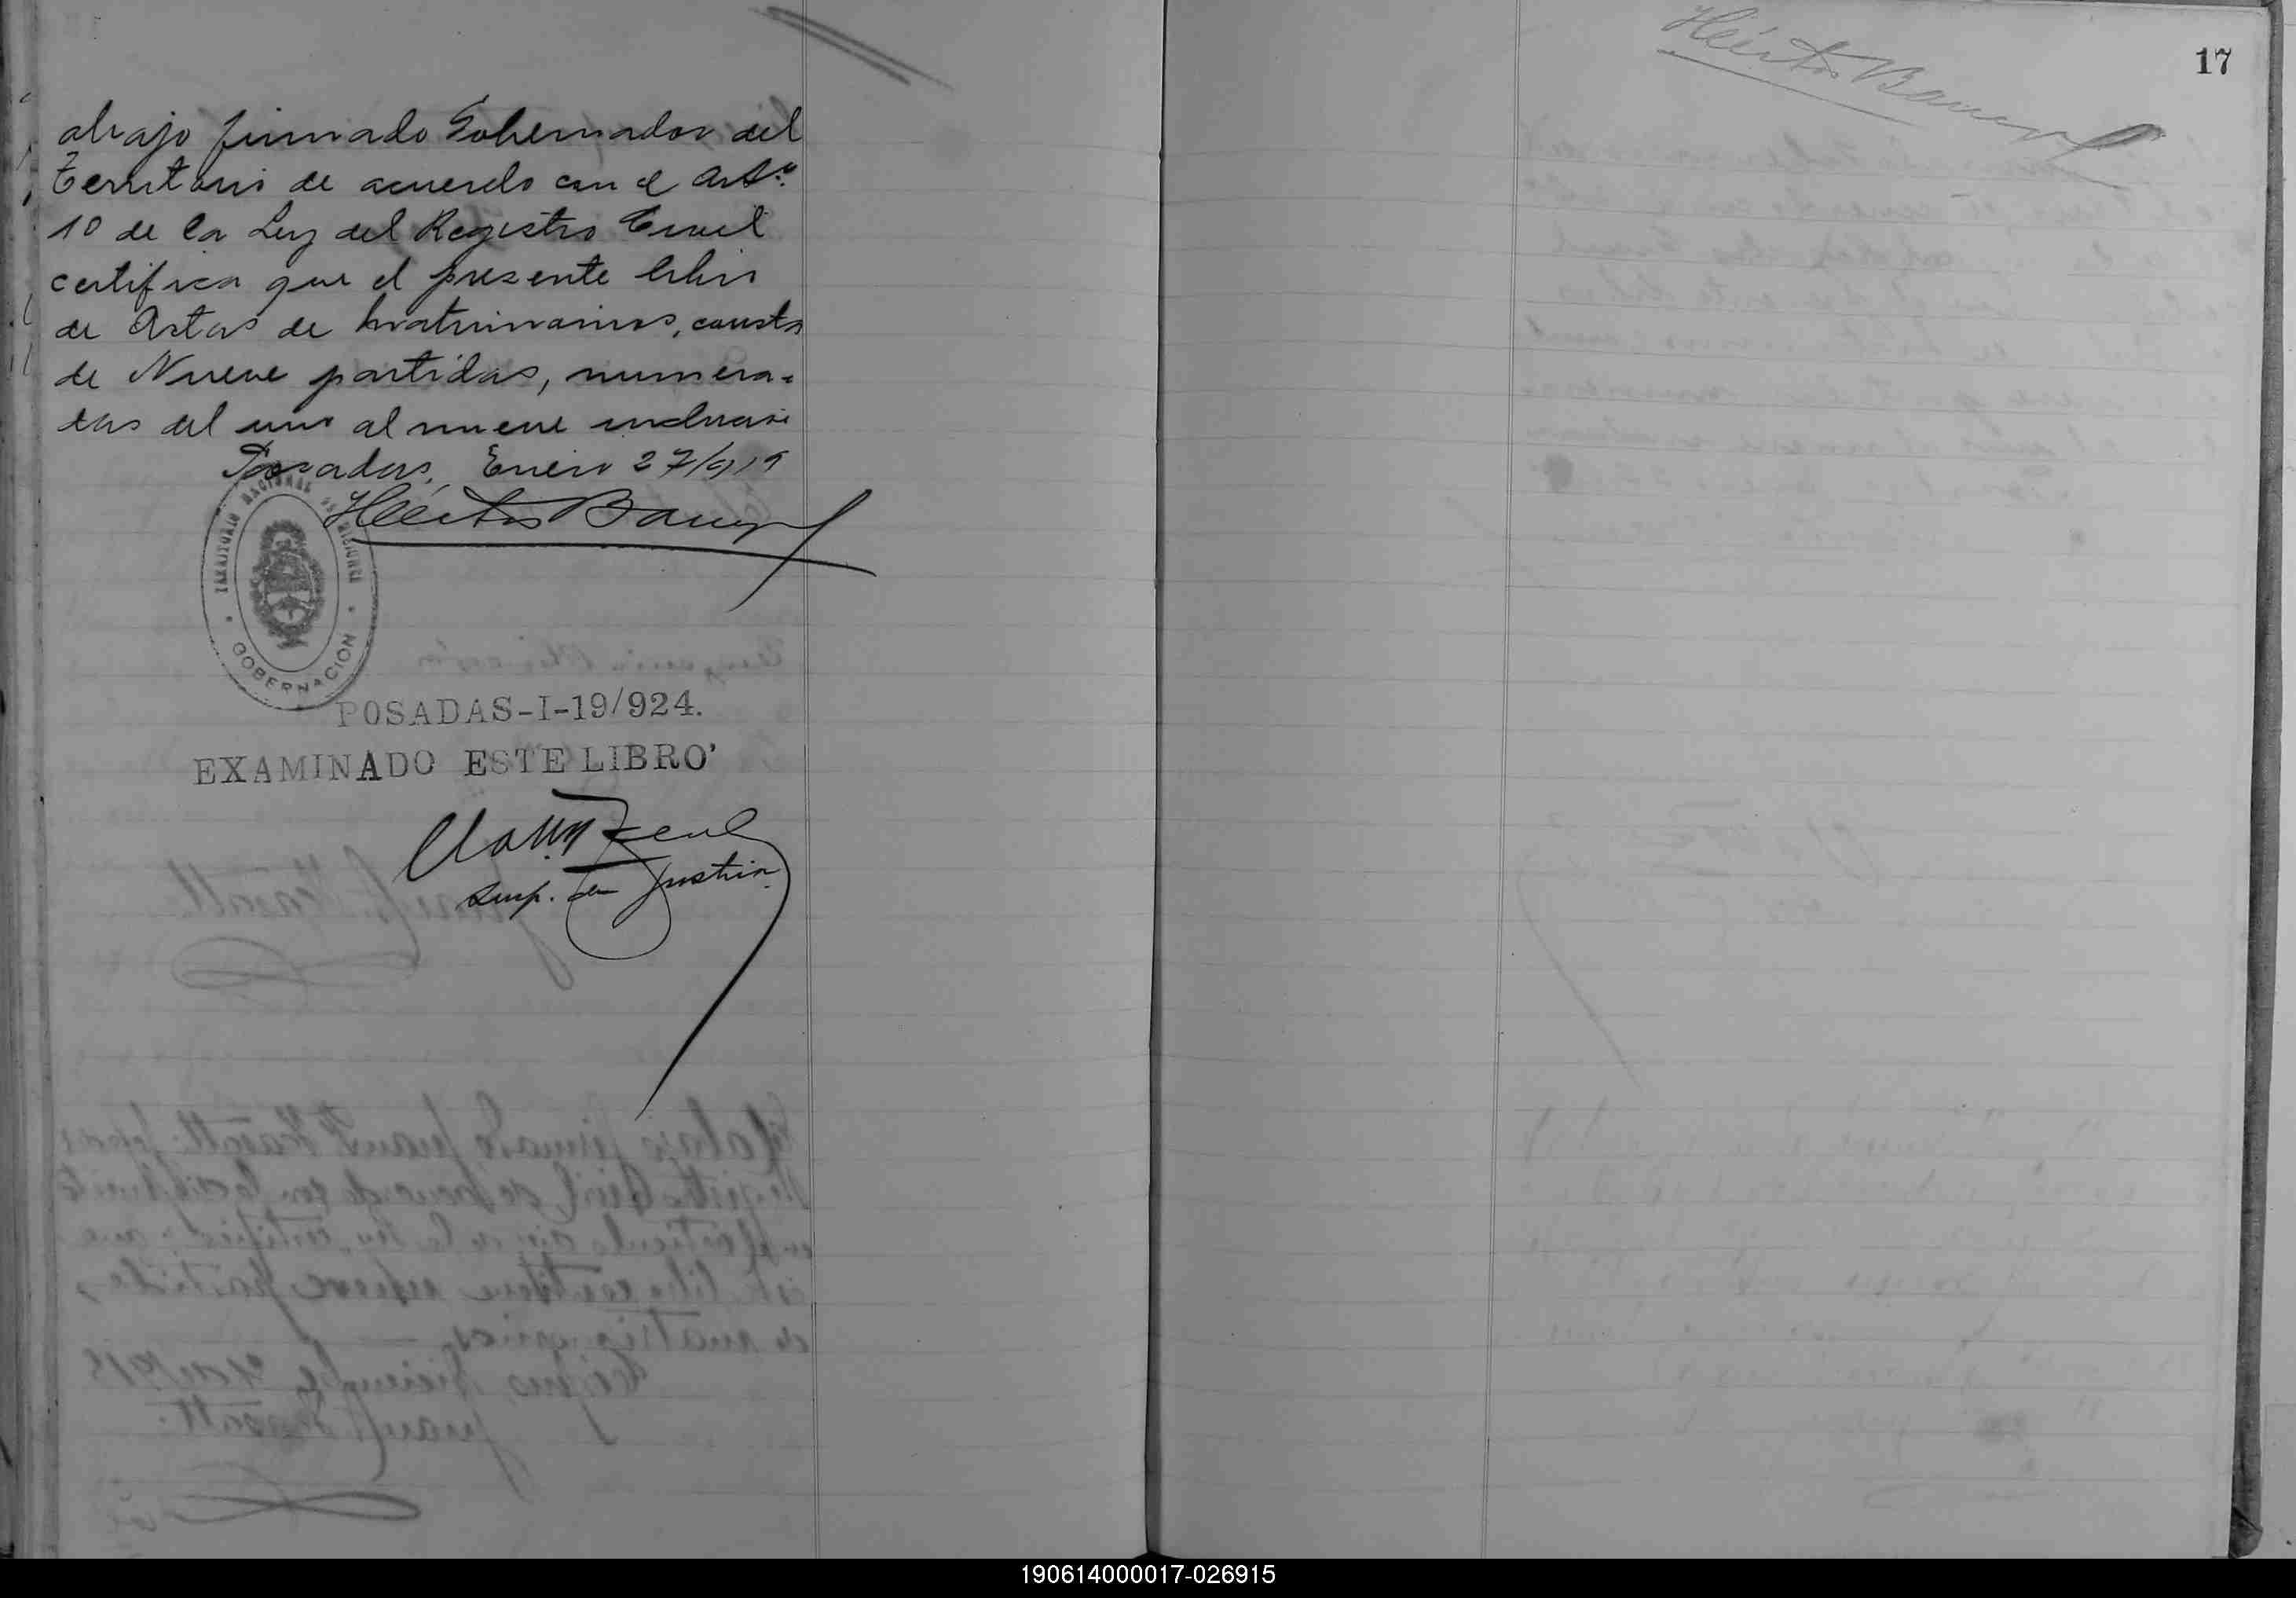 abajo firmado Gobernador del
Territorio de acuerdo con el Artº
10 de la Ley del Registro Civil
certifica que el presente libro
de Actas de Matrimonios, consta
de Nueve partidas, numera-
das del uno al nueve inclusive
Posadas, Enero 27/919
Héctor Barreyro
TERRITORIO NACIONAL DE MISIONES
GOBERNACION
POSADAS-I-19/924.
EXAMINADO ESTE LIBRO
Insp. de Justicia
Héctor Barreyro
17
190614000017-026915